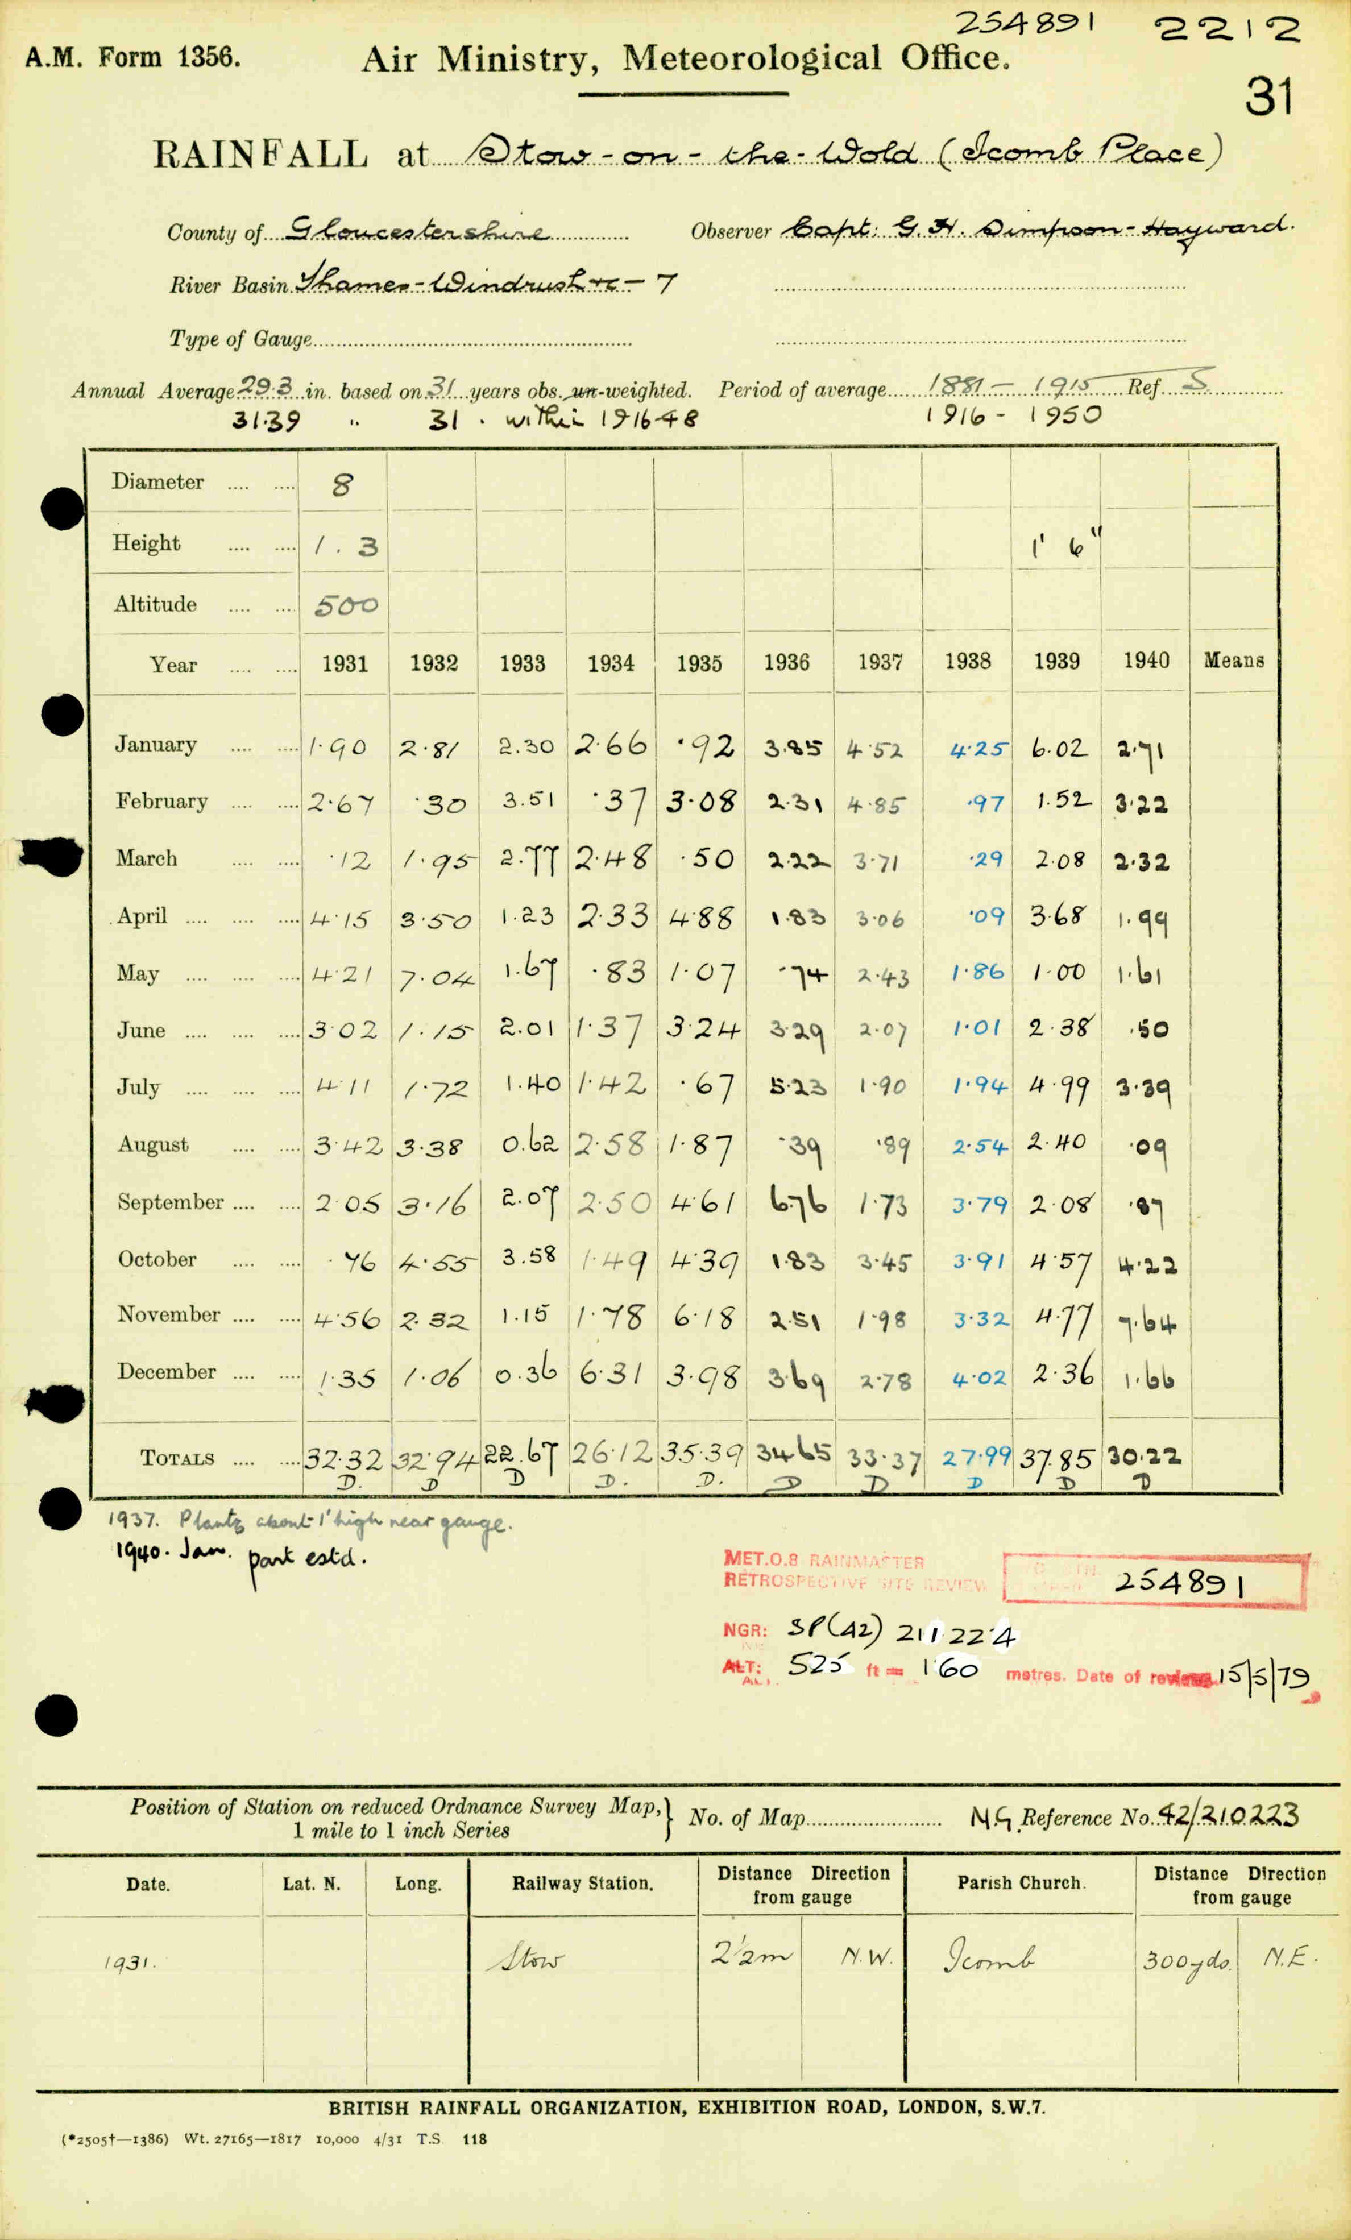 254891 2212
A.M. Form 1356. Air Ministry, Meteorological Office.
31
RAINFALL at Stow-on-the-Wold (Icomb Place)
County of Gloucestershire Observer Capt: G. H. Simpson-Hayward.
River Basin Thames-Windrush &c - 7
Type of Gauge
Annual Average 29.3 in. based on 31 years obs. un-weighted. Period of average 1881 - 1915 Ref. S.
31.39 " 31 . within 1916-48 1916 - 1950
Diameter 8
Height 1. 3 1' 6"
Altitude 500
Year 1931 1932 1933 1934 1935 1936 1937 1938 1939 1940 Means
January 1.90 2.81 2.30 2.66 .92 3.85 4.52 4.25 6.02 2.71
February 2.67 .30 3.51 .37 3.08 2.31 4.85 .97 1.52 3.22
March .12 1.95 2.77 2.48 .50 2.22 3.71 .29 2.08 2.32
April 4.15 3.50 1.23 2.33 4.88 1.83 3.06 .09 3.68 1.99
May 4.21 7.04 1.67 .83 1.07 .74 2.43 1.86 1.00 1.61
June 3.02 1.15 2.01 1.37 3.24 3.29 2.07 1.01 2.38 .50
July 4.11 1.72 1.40 1.42 .67 5.23 1.90 1.94 4.99 3.39
August 3.42 3.38 0.62 2.58 1.87 .39 .89 2.54 2.40 .09
September 2.05 3.16 2.07 2.50 4.61 6.76 1.73 3.79 2.08 .87
October .76 4.55 3.58 1.49 4.39 1.83 3.45 3.91 4.57 4.22
November 4.56 2.32 1.15 1.78 6.18 2.51 1.98 3.32 4.77 7.64
December 1.35 1.06 0.36 6.31 3.98 3.69 2.78 4.02 2.36 1.66
TOTALS 32.32 32.94 22.67 26.12 35.39 34.65 33.37 27.99 37.85 30.22
D. D D D. D. D D D D D
1937. Plants about 1' high near gauge.
1940. Jan. part estd.
MET.O.8 RAINMASTER
RETROSPECTIVE SITE REVIEW 254891
NGR: SP(42) 211 224
ALT: 525 ft = 160 metres. Date of review 15/5/79
Position of Station on reduced Ordnance Survey Map,
1 mile to 1 inch Series
No. of Map N.G. Reference No. 42/210223
Date. Lat. N. Long. Railway Station. Distance Direction from gauge Parish Church. Distance Direction from gauge
1931. Stow 2½m N.W. Icomb 300yds. N.E.
BRITISH RAINFALL ORGANIZATION, EXHIBITION ROAD, LONDON, S.W.7.
(*2505†—1386) Wt. 27165—1817 10,000 4/31 T.S. 118